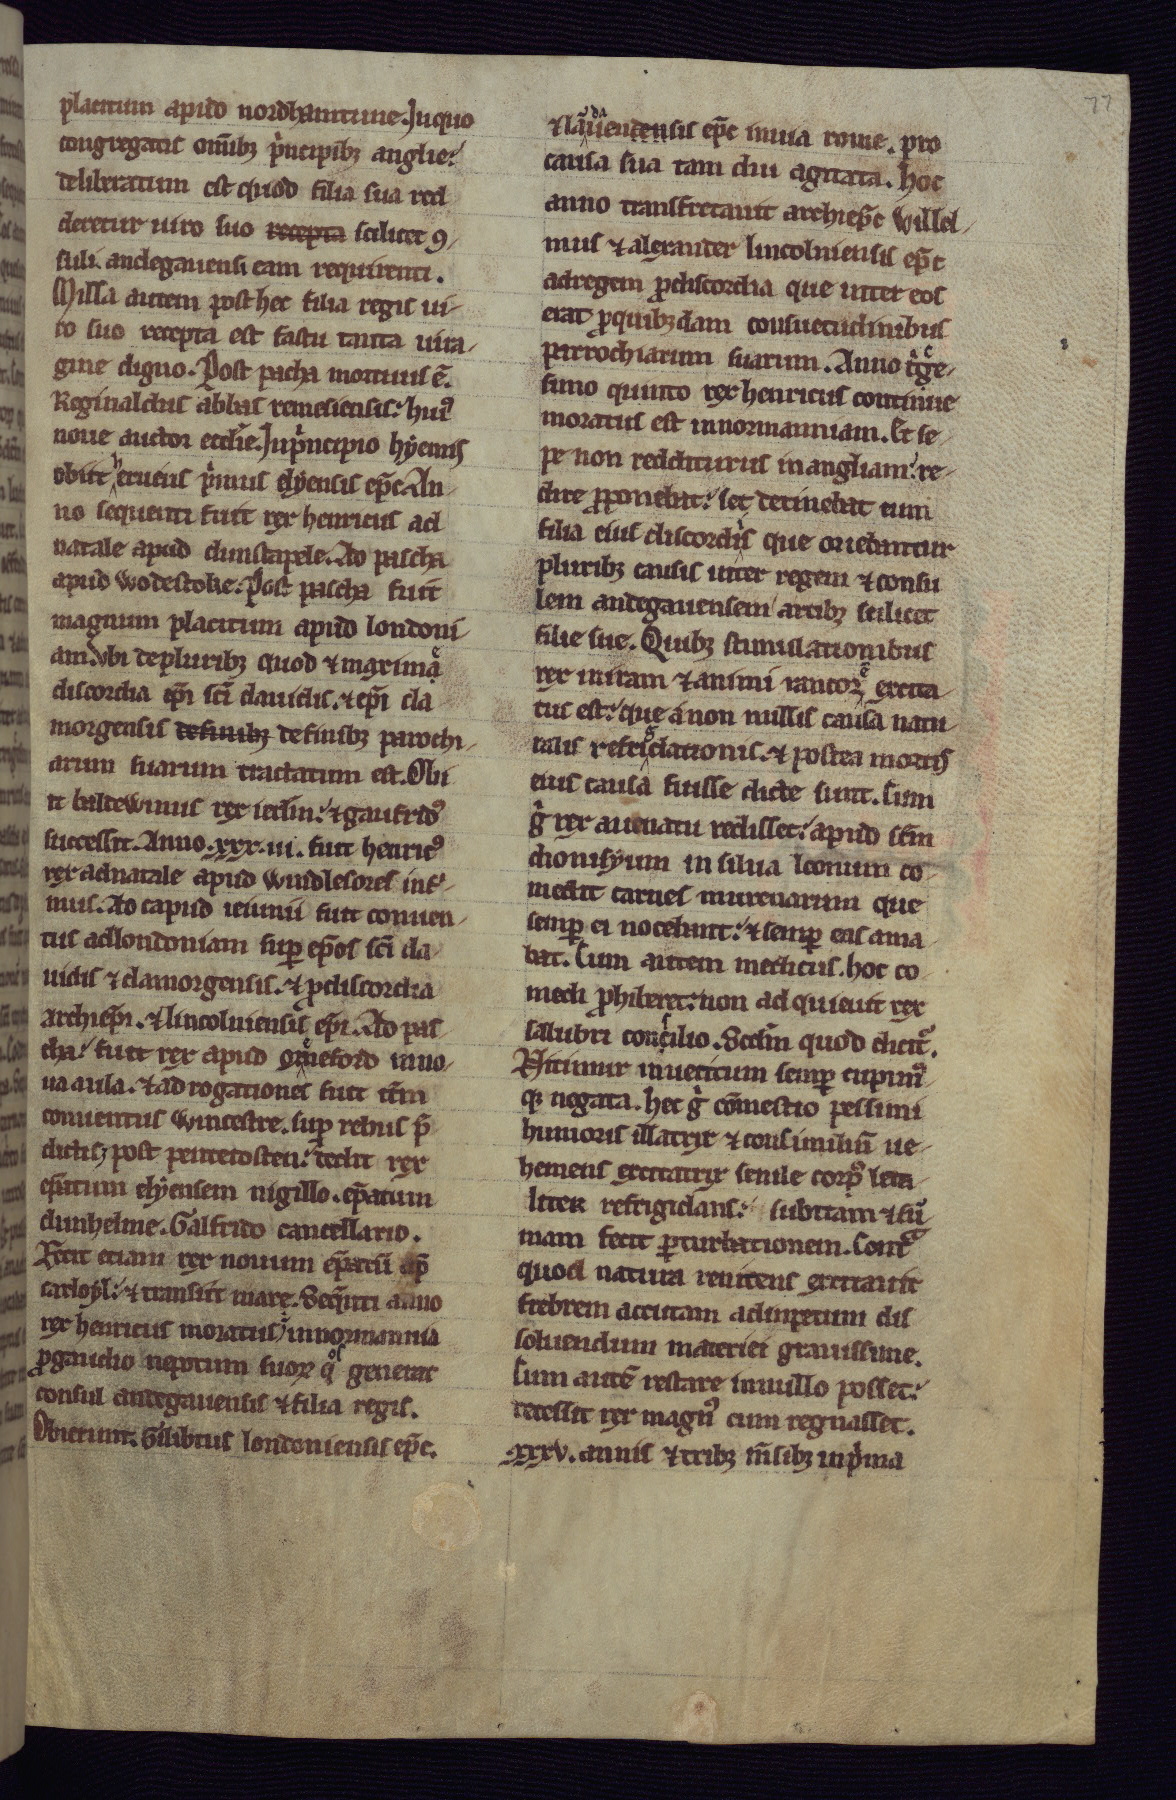 77
placitum apud nordhamtune. In quo
congregatis om̄ibꝫ p̓ncipibꝫ anglie:
deliberatum est quod filia sua red
deretur uiro suo recepta scilicet ꝯ-
suli. andegauensi eam requirenti.
Missa autem post hec filia regis ui-
ro suo recepta est fastu tanta uira-
gine digno. Post pacha mortuus ē.
Reginaldus ab̄bas remesiensis: huiꝰ
noue auctor eccl̄ie. In p̓ncipio hyemis
obiit herueus p̓mus elyensis ep̄c. An-
no sequenti fuit rex henricus ad
natale apud dunstaple. Ad pascha
apud wodestoke. Post pascha fuit
magnum placitum apud londoni
am. Vbi de pluribꝫ quod & maxima
discordia ep̄i sc̄i dauidis. & ep̄i cla
morgensis definibꝫ de finibꝫ parochi-
arum suarum tractatum est. Obi
it baldewinus rex ierl̄m: & gaufridꝰ
successit. Anno .xxx.iii. fuit henricꝰ
rex ad natale apud windlesores infir-
mus. Ad capud ieiunii fuit conuen-
tus ad londoniam suꝑ ep̄os sc̄i da
uidis & clamorgensis. & ꝓ discordia
archiep̄i. & lincolniensis ep̄i. Ad pas
cha: fuit rex apud oxneford in no-
ua aula. & ad rogationes fuit itm̄
conuentus wincestre. suꝑ rebus p̄
dictis. post pentecosten: dedit rex
ep̄atum elyensem nigillo. ep̄atum
dunhelme. Galfrido cancellario.
Fecit etiam rex nouum ep̄atū ap̄
carloyl: & transiit mare. Seq̄nti anno
rex henricus moratus innormannia
ꝓ gaudio nepotum suoꝝ q̓s generat
consul andegauensis & filia regis.
Obierunt. Gilibtus londoniensis ep̄c.
& landauendensis ep̄c in uia rome. pro
causa sua tam diu agitata. Hoc
anno transfretauit archiep̄c Willel-
mus & alexander lincolniensis ep̄c
ad regem ꝓ discordia que inter eos
erat ꝓ quibꝫdam consuetudinibus
parrochiarum suarum. Anno t̓ce-
simo quinto rex henricus continue
moratus est in normanniam. Et se-
pe non redditurus in angliam: re-
dire ꝓponebat: set detinebat eum
filia eius discordiis que oriebantur
pluribꝫ causis inter regem & consu
lem andegauensem artibꝫ scilicet
filie sue. Quibꝫ stimulationibus
rex in iram & animi rancorē excita
tus est: que a non nullis causa natu
ralis refrigdationis. & postea mortis
eius causa fuisse dicte sunt. Cum
g̓ rex a uenatu redisset: apud sc̄m
dionisyum in silua leonum co-
medit carnes murenarum que
semꝑ ei nocebant: & semꝑ eas ama
bat. Cum autem medicus. hoc co-
medi ꝓhiberet: non adquieuit rex
salubri consilio. Scd̄m quod dicit᷑.
Nitimur inuetitum semꝑ cupimꝰ
qꝫ negata. Hec g̓ com̄estio pessimi
humoris illatrix & consimiliū ue-
hemens excitatrix senile corpꝰ leta
liter refrigidans: subitam & sū
mam fecit ꝑturbationem. Contra
quod natura renitens excitauit
febrem accutam ad impetum dis
soluendum materiei grauissime.
Cum autē restare in nullo posset:
decessit rex magnꝰ cum regnasset.
.xxxv. annis & tribꝫ m̄sibꝫ in p̓ma